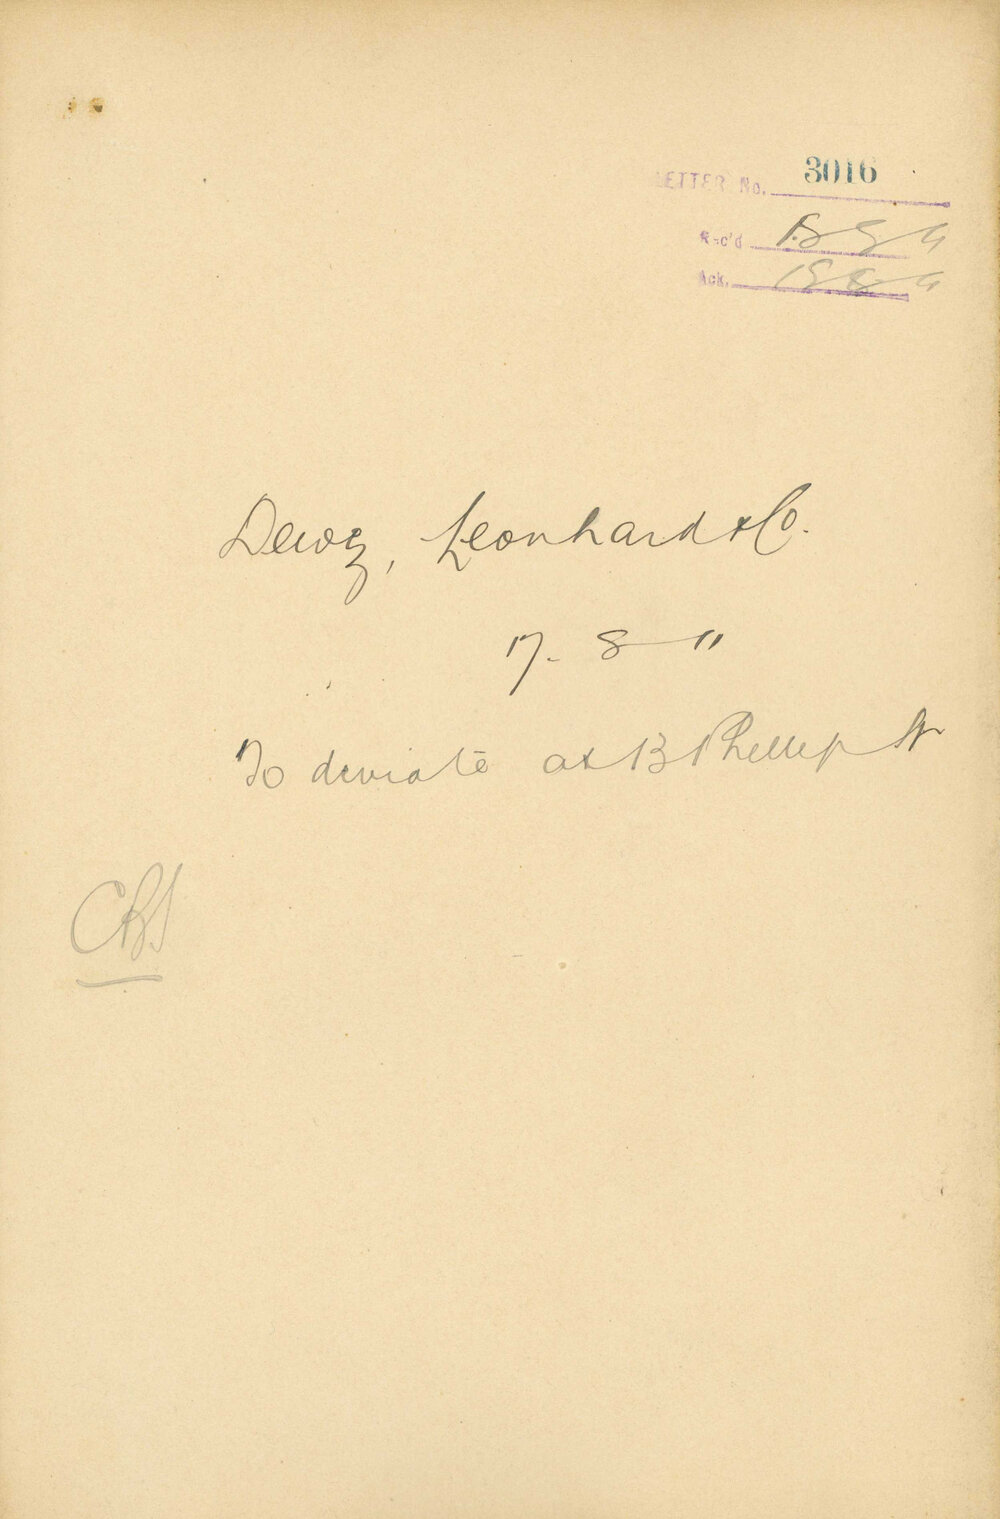 LETTER No. 3016
Rec'd 18 8 11
Ack. 19 8 11
Dewez, Leonhard & Co.
17. 8 11
To deviate at B Phillip St
CBS